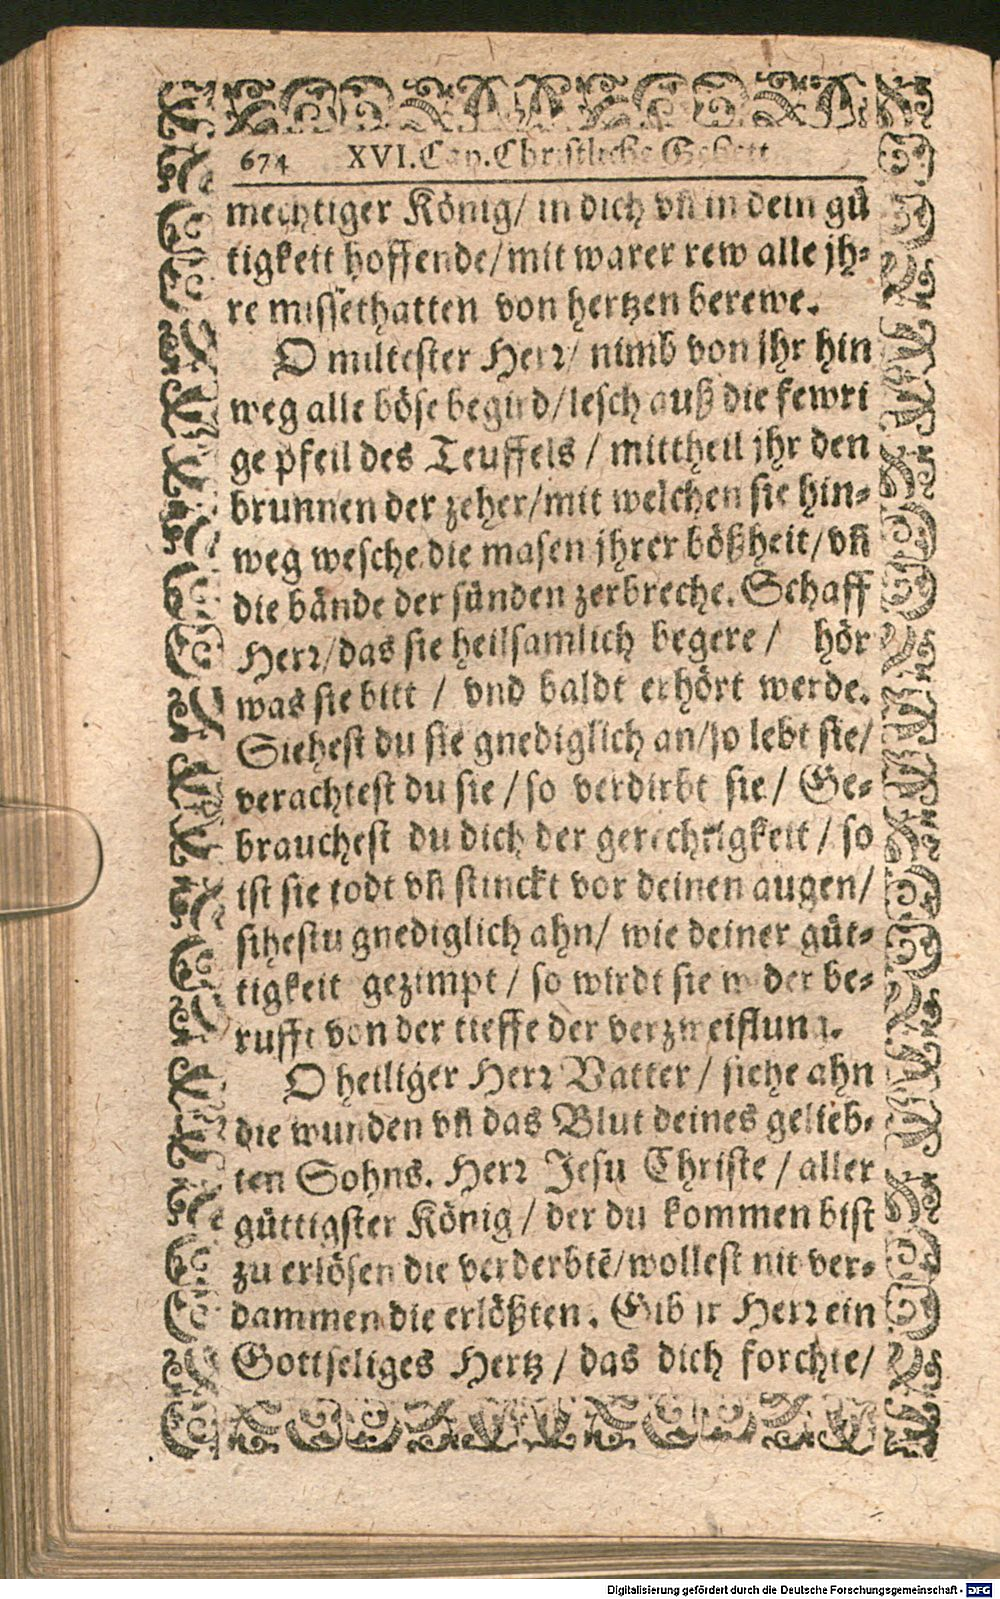 674 XVI. Cap. Christliche Gebett
mechtiger König/ in dich vñ in dein gü
tigkeit hoffende/mit warer rew alle jh-
re missethatten von hertzen berewe.
O miltester Herr/ nimb von jhr hin
weg alle böse begird/lesch auß die fewri
ge pfeil des Teuffels / mittheil jhr den
brunnen der zeher/mit welchen sie hin-
weg wesche die masen jhrer bößheit/vñ
die bände der sünden zerbreche. Schaff
Herr/das sie heilsamlich begere / hör
was sie bitt / vnd baldt erhört werde.
Siehest du sie gnediglich an/so lebt sie/
verachtest du sie / so verdirbt sie / Ge-
brauchest du dich der gerechtigkeit / so
ist sie todt vñ stinckt vor deinen augen/
sihestu gnediglich ahn/ wie deiner güt-
tigkeit gezimpt / so wirdt sie wider be-
rufft von der tieffe der verzweiflung.
O heiliger Herr Vatter / siehe ahn
die wunden vñ das Blut deines gelieb-
ten Sohns. Herr Jesu Christe / aller
güttigster König / der du kommen bist
zu erlösen die verderbtē/wollest nit ver-
dammen die erlößten. Gib jr Herr ein
Gottseliges Hertz / das dich forchte/
Digitalisierung gefördert durch die Deutsche Forschungsgemeinschaft - DFG